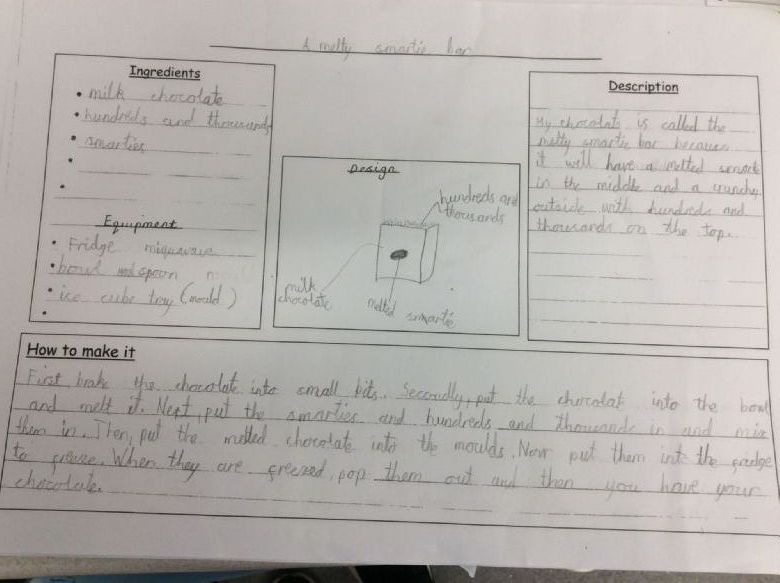 A melty smartie bar
Ingredients
• milk chocolate
• hundreds and thousands
• smarties
•
•
Equipment
• Fridge miquwave
• bowl and spoon
• ice cube tray (mould)
•
Design
hundreds and
thousands
milk
chocolate
melted smartie
Description
My chocolate is called the
melty smartie bar because
it will have a melted smartie
in the middle and a crunchy
outside with hundreds and
thousands on the top.
How to make it
First brake the chocolate into small bits. Secondly, put the chocolate into the bowl
and melt it. Next, put the smarties and hundreds and thousands in and mix
them in. Then, put the melted chocolate into the moulds. Now put them into the fridge
to freeze. When they are freezed, pop them out and then you have your
chocolate.